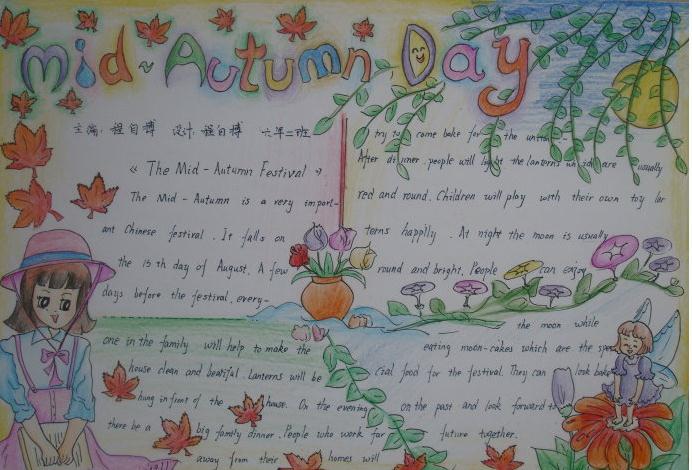 Mid-Autumn Day
主编:程自搏 设计:程自搏 六年二班
《The Mid-Autumn Festival》
The Mid-Autumn is a very import-
ant Chinese festival. It falls on
the 15th day of August. A few
days before the festival, every-
one in the family will help to make the
house clean and beatiful. Lanterns will be
hung in front of the house. On the evening
there be a big family dinner. People who work far
away from their homes will
try to come bake for the
After dinner, people will light the lanterns are usually
red and round. Children will play with their own toy lan
terns happily. At night the moon is usually
round and bright. People can enjoy
the moon while
eating moon-cakes which are the spe
cial food for the festival. They can look bake
on the past and look forward to
future together.